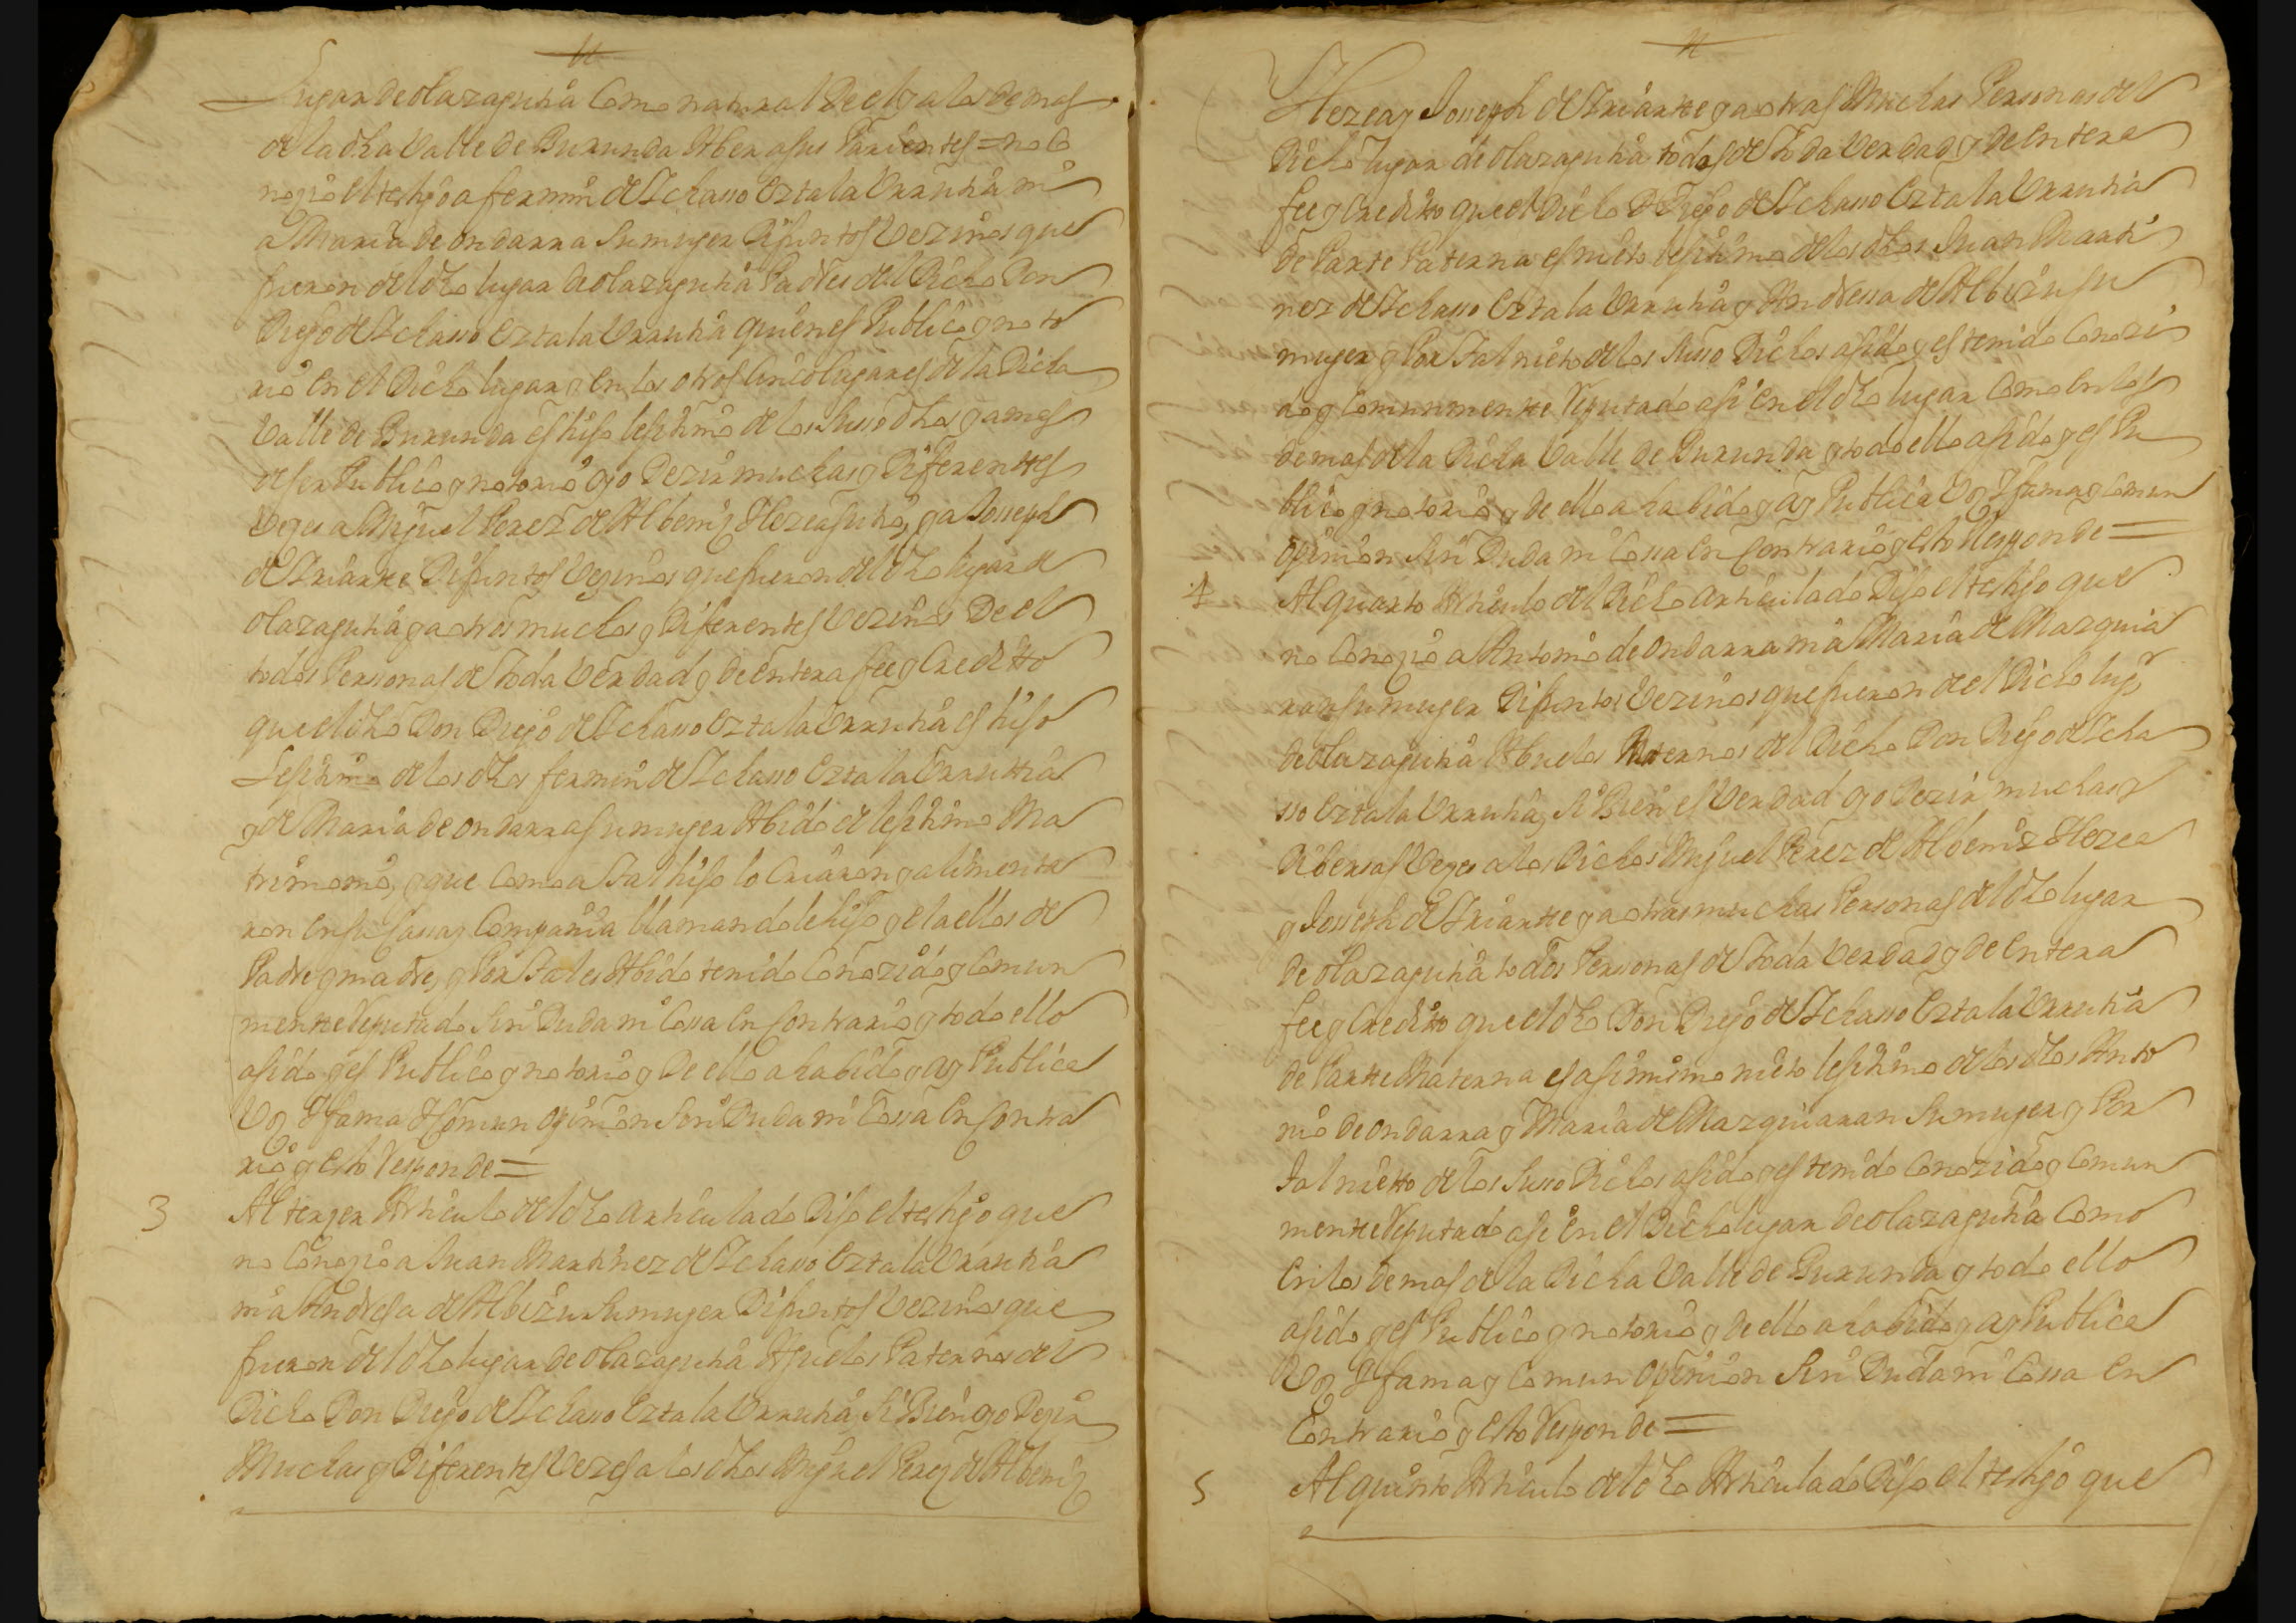 Lugar de olazagutia Como natural De el y a los demas
de la dha Valle de Burunda A ber a sus Parientes = no Co
noçio el testigo a fermin de Ichasso Eztala Urrutia ni
a Maria de ondarra su muger Difuntos Vezinos que
fueron del dho lugar de olazagutia Padres del Dicho Don
Diego de Ichasso Eztala Urrutia quien es Publico y noto
rio en el Dicho lugar y en los otros cinco lugares de la Dicha
Valle de Burunda es hijo lejitimo de los Susso dhos y a mas
de ser Publico y notorio oyo Dezir muchas y Diferentes
Veçes a Miguel Perez de Albeniz Hezeasuso, y a Josseph
de Iriarte Difuntos Veçinos que fueron del dho lugar de
olazagutia y a otros muchos y Diferentes Vezinos De el
todos Personas de toda Verdad y de entera fee y Credito
que el dho Don Diego de Ichasso Eztala Urrutia es hijo
Lejitimo de los dhos fermin de Ichasso Eztala Urruttia
y de Maria de ondarra su muger Abido de lejitimo Ma
trimonio, y que Como a tal hijo lo Criaron y alimenta
ron en su Cassa y Compañia llamandole hijo y el a ellos de
Padre y madre, y Por tal es Abido tenido Conozido y Comun
mente Reputado Sin Duda ni Cossa en Contrario y todo ello
a sido y es Publico y notorio y De ello a habido y ay Publica
Voz Y fama Y Comun opinion Sin Duda ni Cossa en Contra
rio y esto Responde =
3 Al terzer Articulo del dho articulado Dijo el testigo que
no Conoçio a Juan Martinez de Ichasso Eztala Urrutia
ni a Andresa de Albizu Su muger Difuntos Vezinos que
fueron del dho lugar de olazagutia Aguelos Paternos del
Dicho Don Diego de Ichasso Eztala Urrutia, si Bien oyo Deçir
Muchas y Diferentes Vezes a los dhos Miguel Perez de Albeniz
Hezeay Josseph de Iriartte y a otras Muchas Personas del
Dicho lugar de olazagutia todas de toda Verdad y de entera
fee y Credito que el Dicho D Diego de Ichasso Eztala Urrutia
de Parte Paterna es nieto lejitimo de los dhos Juan Marti
nez de Ichasso Eztala Urrutia y Andressa de Albizu su
muger y Por tal nieto de los Susso Dichos a sido y es tenido Conozi
do y Comunmente Reputado assi en el dho lugar Como en los
demas de la Dicha Valle de Burunda y todo ello a sido y es Pu
blico y notorio y de ello a habido y ay Publica Voz Y fama y Comun
opinion Sin Duda ni Cossa en Contrario y esto Responde =
4 Al quarto Articulo del Dicho articulado Dijo el testigo que
no Conoçio a Antonio de ondarra ni a Maria de Mazquia
ran su muger Difuntos Vezinos que fueron del Dicho lugr
de olazagutia Abuelos Maternos del Dicho Don Diego de Icha
sso Eztala Urrutia, si Bien es Verdad oyo Dezir muchas y
Dibersas Veçes a los Dichos Miguel Perez de Albeniz Hezea
y Josseph de Iriartte y a otras muchas Personas del dho lugar
de olazagutia todos Personas de toda Verdad y de entera
fee y Credito que el dho Don Diego de Ichasso Eztala Urrutia
de Parte Materna es asimismo nieto lejitimo de los dhos Anto
nio de ondarra y Maria de Mazquiaran Su muger y Por
tal nietto de los Susso Dichos a sido y es tenido Conozido y Comun
mente Reputado assi en el Dicho lugar de olazagutia Como
en los demas de la Dicha Valle de Burunda y todo ello
a sido y es Publico y notorio y de ello a habido y ay Publica
Voz Y fama y Comun opinion Sin Duda ni Cossa en
Contrario y esto Responde =
5 Al quinto Articulo del dho Articulado Dijo el testigo que